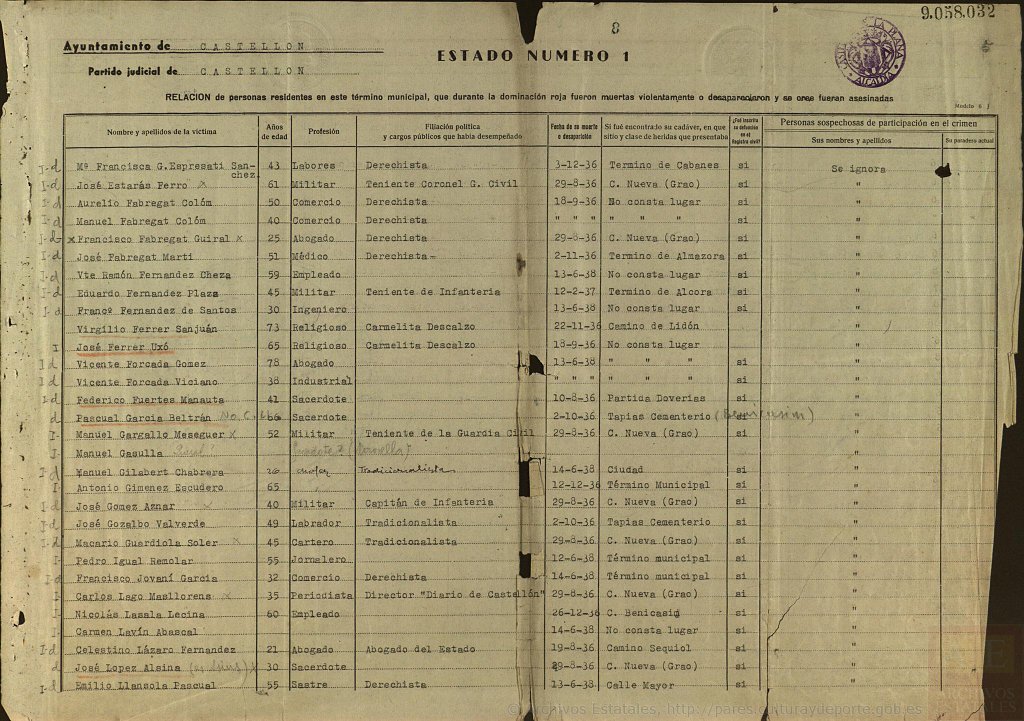 9.058.032
8
Ayuntamiento de CASTELLON
ESTADO NUMERO 1
Partido judicial de CASTELLON
RELACION de personas residentes en este término municipal, que durante la dominación roja fueron muertas violentamente o desaparecieron y se cree fueran asesinadas
Nombre y apellidos de la víctima Años de edad Profesión Filiación política y cargos públicos que había desempeñado Fecha de su muerte o desaparición Si fué encontrado su cadáver, en que sitio y clase de heridas que presentaba ¿Fué inscrita su defunción en el Registro civil? Personas sospechosas de participación en el crimen
Sus nombres y apellidos Su paradero actual
I-d Mª Francisca G.Espresati Sanchez 43 Labores Derechista 3-12-36 Termino de Cabanes si Se ignora
I-d José Estarás Ferro x 61 Militar Teniente Coronel G. Civil 29-8-36 C. Nueva (Grao) si "
I-d Aurelio Fabregat Colóm 50 Comercio Derechista 18-9-36 No consta lugar si "
I-d Manuel Fabregat Colóm 40 Comercio Derechista " " " " " " si "
I-d x Francisco Fabregat Guiral x 25 Abogado Derechista 29-8-36 C. Nueva (Grao) si "
I-d José Fabregat Marti 51 Médico Derechista- 2-11-36 Termino de Almazora si "
I-d Vte Ramón Fernandez Cheza 59 Empleado 13-6-38 No consta lugar si "
I-d Eduardo Fernandez Plaza 45 Militar Teniente de Infanteria 12-2-37 Termino de Alcora si "
I-d Francº Fernandez de Santos 30 Ingeniero 13-6-38 No consta lugar si "
Virgilio Ferrer Sanjuán 73 Religioso Carmelita Descalzo 22-11-36 Camino de Lidón "
I José Ferrer Uxó 65 Religioso Carmelita Descalzo 18-9-36 No consta lugar "
I d Vicente Forcada Gomez 78 Abogado 13-6-38 " " " si "
I d Vicente Forcada Viciano 38 Industrial " " " " " " si "
I-d Federico Fuertes Manauta 41 Sacerdote 10-8-36 Partida Doverias si "
d Pascual Garcia Beltrán 66 Sacerdote 2-10-36 Tapias Cementerio (Benicasim) si "
I- Manuel Gargallo Meseguer x 52 Militar Teniente de la Guardia Civil 29-8-36 C. Nueva (Grao) si "
I- Manuel Gasulla "
I-d Manuel Gilabert Chabrera 26 Tradicionalista 14-6-38 Ciudad si "
I- Antonio Gimenez Escudero 65 12-12-36 Término Municipal si "
I-d José Gomez Aznar x 40 Militar Capitán de Infanteria 29-8-36 C. Nueva (Grao) si "
I-d José Gozalbo Valverde 49 Labrador Tradicionalista 2-10-36 Tapias Cementerio si "
I-d Macario Guardiola Soler x 45 Cartero Tradicionalista 29-8-36 C. Nueva (Grao) si "
I- Pedro Igual Remolar 55 Jornalero 12-6-38 Término municipal si "
I-d Francisco Jovaní Garcia 32 Comercio Derechista 14-6-38 Término municipal si "
I- Carlos Lago Masllorens x 35 Periodista Director "Diario de Castellón" 29-8-36 C. Nueva (Grao) si "
I- Nicolás Lasala Lecina 60 Empleado 26-12-36 C. Benicasim si "
Carmen Lavín Abascal 14-6-38 No consta lugar si "
I-d Celestino Lázaro Fernandez 21 Abogado Abogado del Estado 19-8-36 Camino Sequiol si "
José Lopez Alsina x 30 Sacerdote 29-8-36 C. Nueva (Grao) si "
I-d Emilio Llansola Pascual 55 Sastre Derechista 13-6-38 Calle Mayor si "
© Archivos Estatales, http://pares.culturaydeporte.gob.es